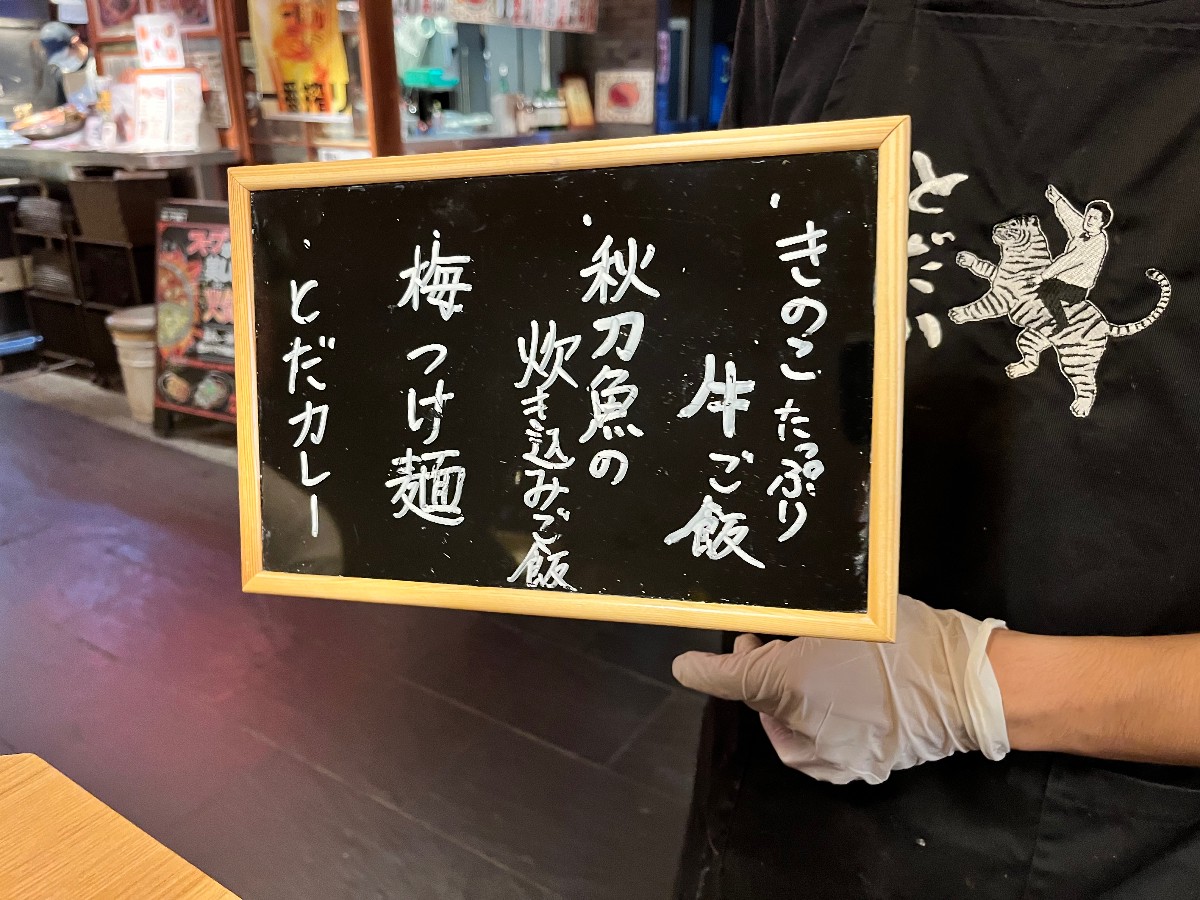 きのこたっぷり
牛ご飯
秋刀魚の
炊き込みご飯
梅つけ麺
とだカレー